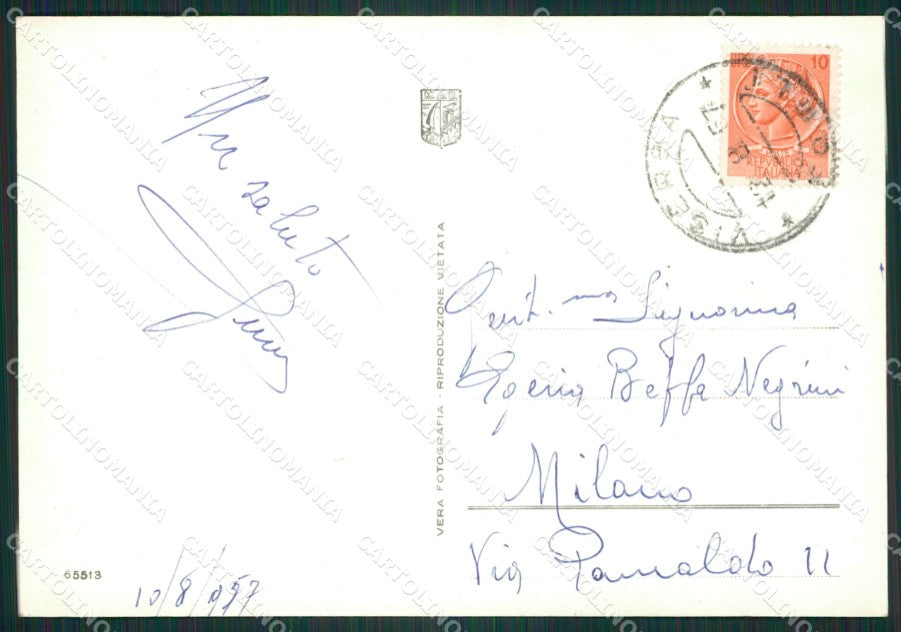 Un saluto
10/8/957
65513
VERA FOTOGRAFIA - RIPRODUZIONE VIETATA
10
REPVBBLICA
ITALIANA
VISERBA
Gent.ma Signorina
Egeria Beffa Negrini
Milano
Via 11
CARTOLINOMANIA